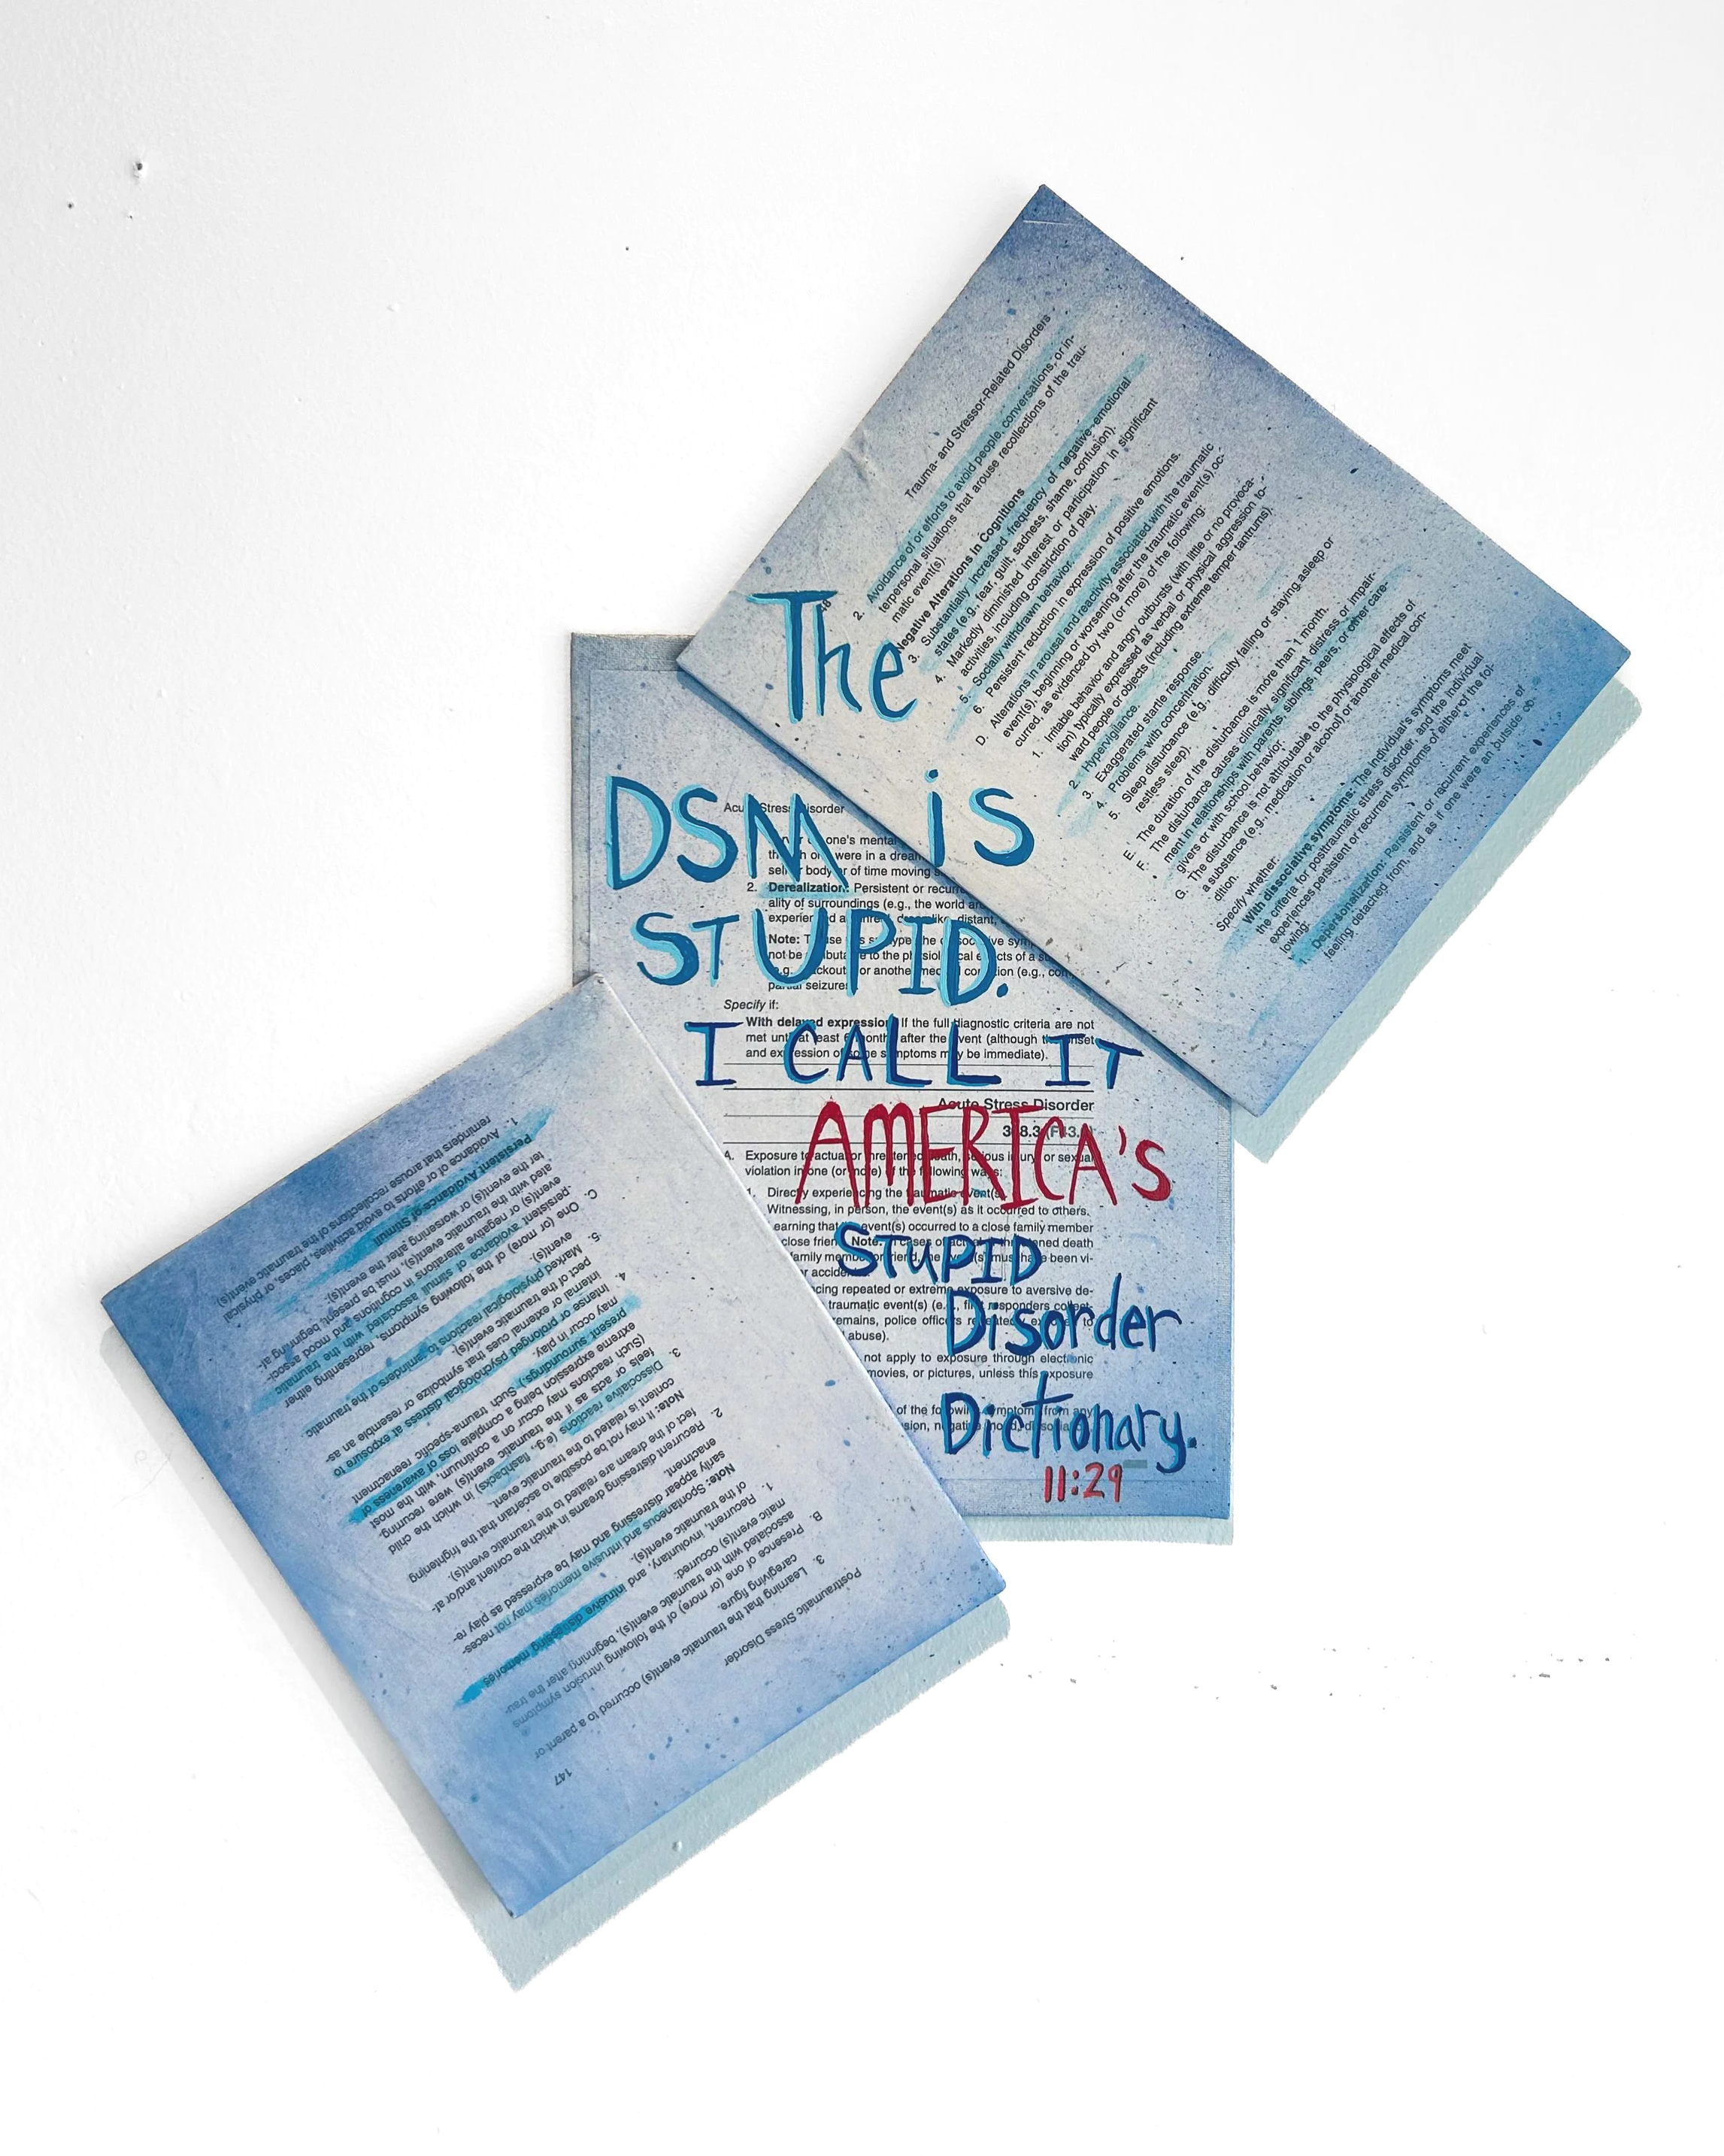 The
DSM is
STUPID.
I CALL IT
AMERICA'S
STUPID
Disorder
Dictionary.
11:29
Trauma- and Stressor-Related Disorders
2. Avoidance of or efforts to avoid people, conversations, or in-
terpersonal situations that arouse recollections of the trau-
matic event(s).
Negative Alterations in Cognitions
3. Substantially increased frequency of negative emotional
states (e.g., fear, guilt, sadness, shame, confusion).
4. Markedly diminished interest or participation in significant
activities, including constriction of play.
5. Socially withdrawn behavior.
6. Persistent reduction in expression of positive emotions.
D. Alterations in arousal and reactivity associated with the traumatic
event(s), beginning or worsening after the traumatic event(s) oc-
curred, as evidenced by two (or more) of the following:
1. Irritable behavior and angry outbursts (with little or no provoca-
tion) typically expressed as verbal or physical aggression to-
ward people or objects (including extreme temper tantrums).
2. Hypervigilance.
3. Exaggerated startle response.
4. Problems with concentration.
5. Sleep disturbance (e.g., difficulty falling or staying asleep or
restless sleep).
E. The duration of the disturbance is more than 1 month.
F. The disturbance causes clinically significant distress or impair-
ment in relationships with parents, siblings, peers, or other care-
givers or with school behavior.
G. The disturbance is not attributable to the physiological effects of
a substance (e.g., medication or alcohol) or another medical con-
dition.
Specify whether:
With dissociative symptoms: The individual's symptoms meet
the criteria for posttraumatic stress disorder, and the individual
experiences persistent or recurrent symptoms of either of the fol-
lowing:
Depersonalization: Persistent or recurrent experiences of
feeling detached from, and as if one were an outside ob-
Acute Stress Disorder
one's mental
were in a dream
body or of time moving
2. Derealization: Persistent or recurr
ality of surroundings (e.g., the world
distant,
Note: To use this subtype, the dissociative sym
not be attributable to the physiological effects of a
blackouts) or another medical condition (e.g., com
partial seizures
Specify if:
With delayed expression: If the full diagnostic criteria are not
met until at least 6 months after the event (although the onset
and expression of some symptoms may be immediate).
Acute Stress Disorder
308.3 (F43.
A. Exposure to actual or threatened death, serious injury, or sexual
violation in one (or more) of the following ways:
1. Directly experiencing the traumatic event(s).
Witnessing, in person, the event(s) as it occurred to others.
earning that event(s) occurred to a close family member
close friend. Note: In cases of actual or threatened death
family member or friend, the event(s) must have been vi-
r accide
cing repeated or extreme exposure to aversive de-
traumatic event(s) (e.g., first responders collect
remains, police officers repeatedly exposed to
abuse).
not apply to exposure through electronic
movies, or pictures, unless this exposure
of the following symptoms from any
sion, negative mood, dissociat
147
Posttraumatic Stress Disorder
3. Learning that the traumatic event(s) occurred to a parent or
caregiving figure.
B. Presence of one (or more) of the following intrusion symptoms
associated with the traumatic event(s), beginning after the trau-
matic event(s) occurred:
1. Recurrent, involuntary, and intrusive distressing memories
of the traumatic event(s).
Note: Spontaneous and intrusive memories may not neces-
sarily appear distressing and may be expressed as play re-
enactment.
2. Recurrent distressing dreams in which the content and/or af-
fect of the dream are related to the traumatic event(s).
Note: It may not be possible to ascertain that the frightening
content is related to the traumatic event.
3. Dissociative reactions (e.g., flashbacks) in which the child
feels or acts as if the traumatic event(s) were recurring.
(Such reactions may occur on a continuum, with the most
extreme expression being a complete loss of awareness of
present surroundings.) Such trauma-specific reenactment
may occur in play.
4. Intense or prolonged psychological distress at exposure to
internal or external cues that symbolize or resemble an as-
pect of the traumatic event(s).
5. Marked physiological reactions to reminders of the traumatic
event(s).
C. One (or more) of the following symptoms, representing either
persistent avoidance of stimuli associated with the traumatic
event(s) or negative alterations in cognitions and mood associ-
ated with the traumatic event(s), must be present, beginning af-
ter the event(s) or worsening after the event(s):
Persistent Avoidance of Stimuli
1. Avoidance of or efforts to avoid activities, places, or physical
reminders that arouse recollections of the traumatic event(s).